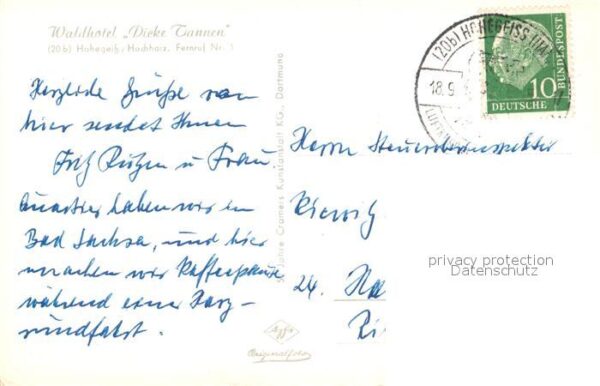 Waldhotel „Dicke Tannen"
(20b) Hohegeiß, Hochharz, Fernruf Nr. 1
Herzliche Grüße von
hier sendet Ihnen
Fritz u. Frau.
Quartier haben wir in
Bad Sachsa, und hier
machen wir Kaffeepause
während einer Harz-
rundfahrt.
Jahre Cramers Kunstanstalt KG, Dortmund
Agfa
Originalfoto
(20b) HOHEGEISS
18.9.
10
DEUTSCHE
BUNDESPOST
Herrn Steuerinspektor
24.
privacy protection
Datenschutz